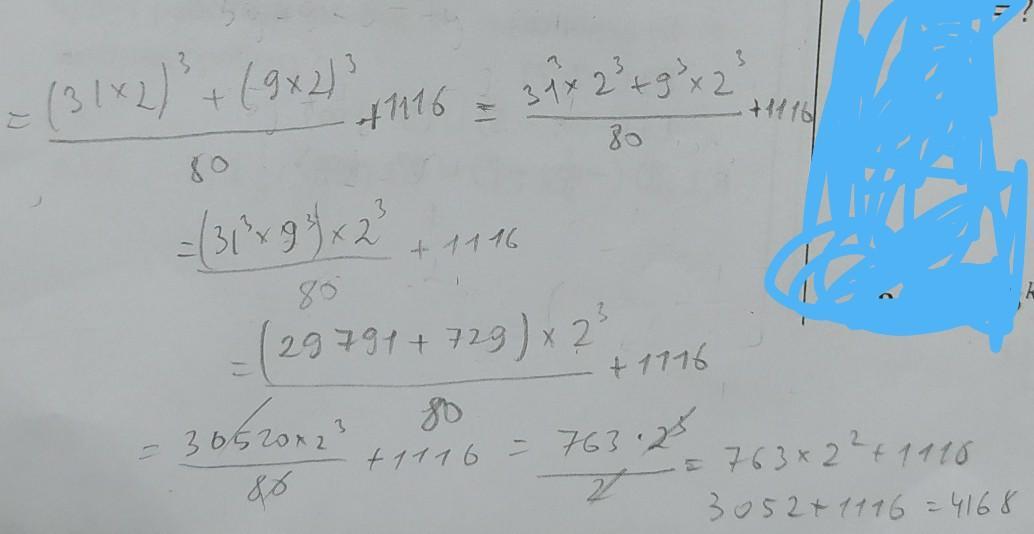 = ?
= \frac{(31×2)^3 + (9×2)^3}{80} + 1116 = \frac{31^3 × 2^3 + 9^3 × 2^3}{80} + 1116
= \frac{(31^3 × 9^3) × 2^3}{80} + 1116
= \frac{(29791 + 729) × 2^3}{80} + 1116
= \frac{30520 × 2^3}{80} + 1116 = \frac{763 · 2^3}{2} = 763 × 2^2 + 1116
3052 + 1116 = 4168